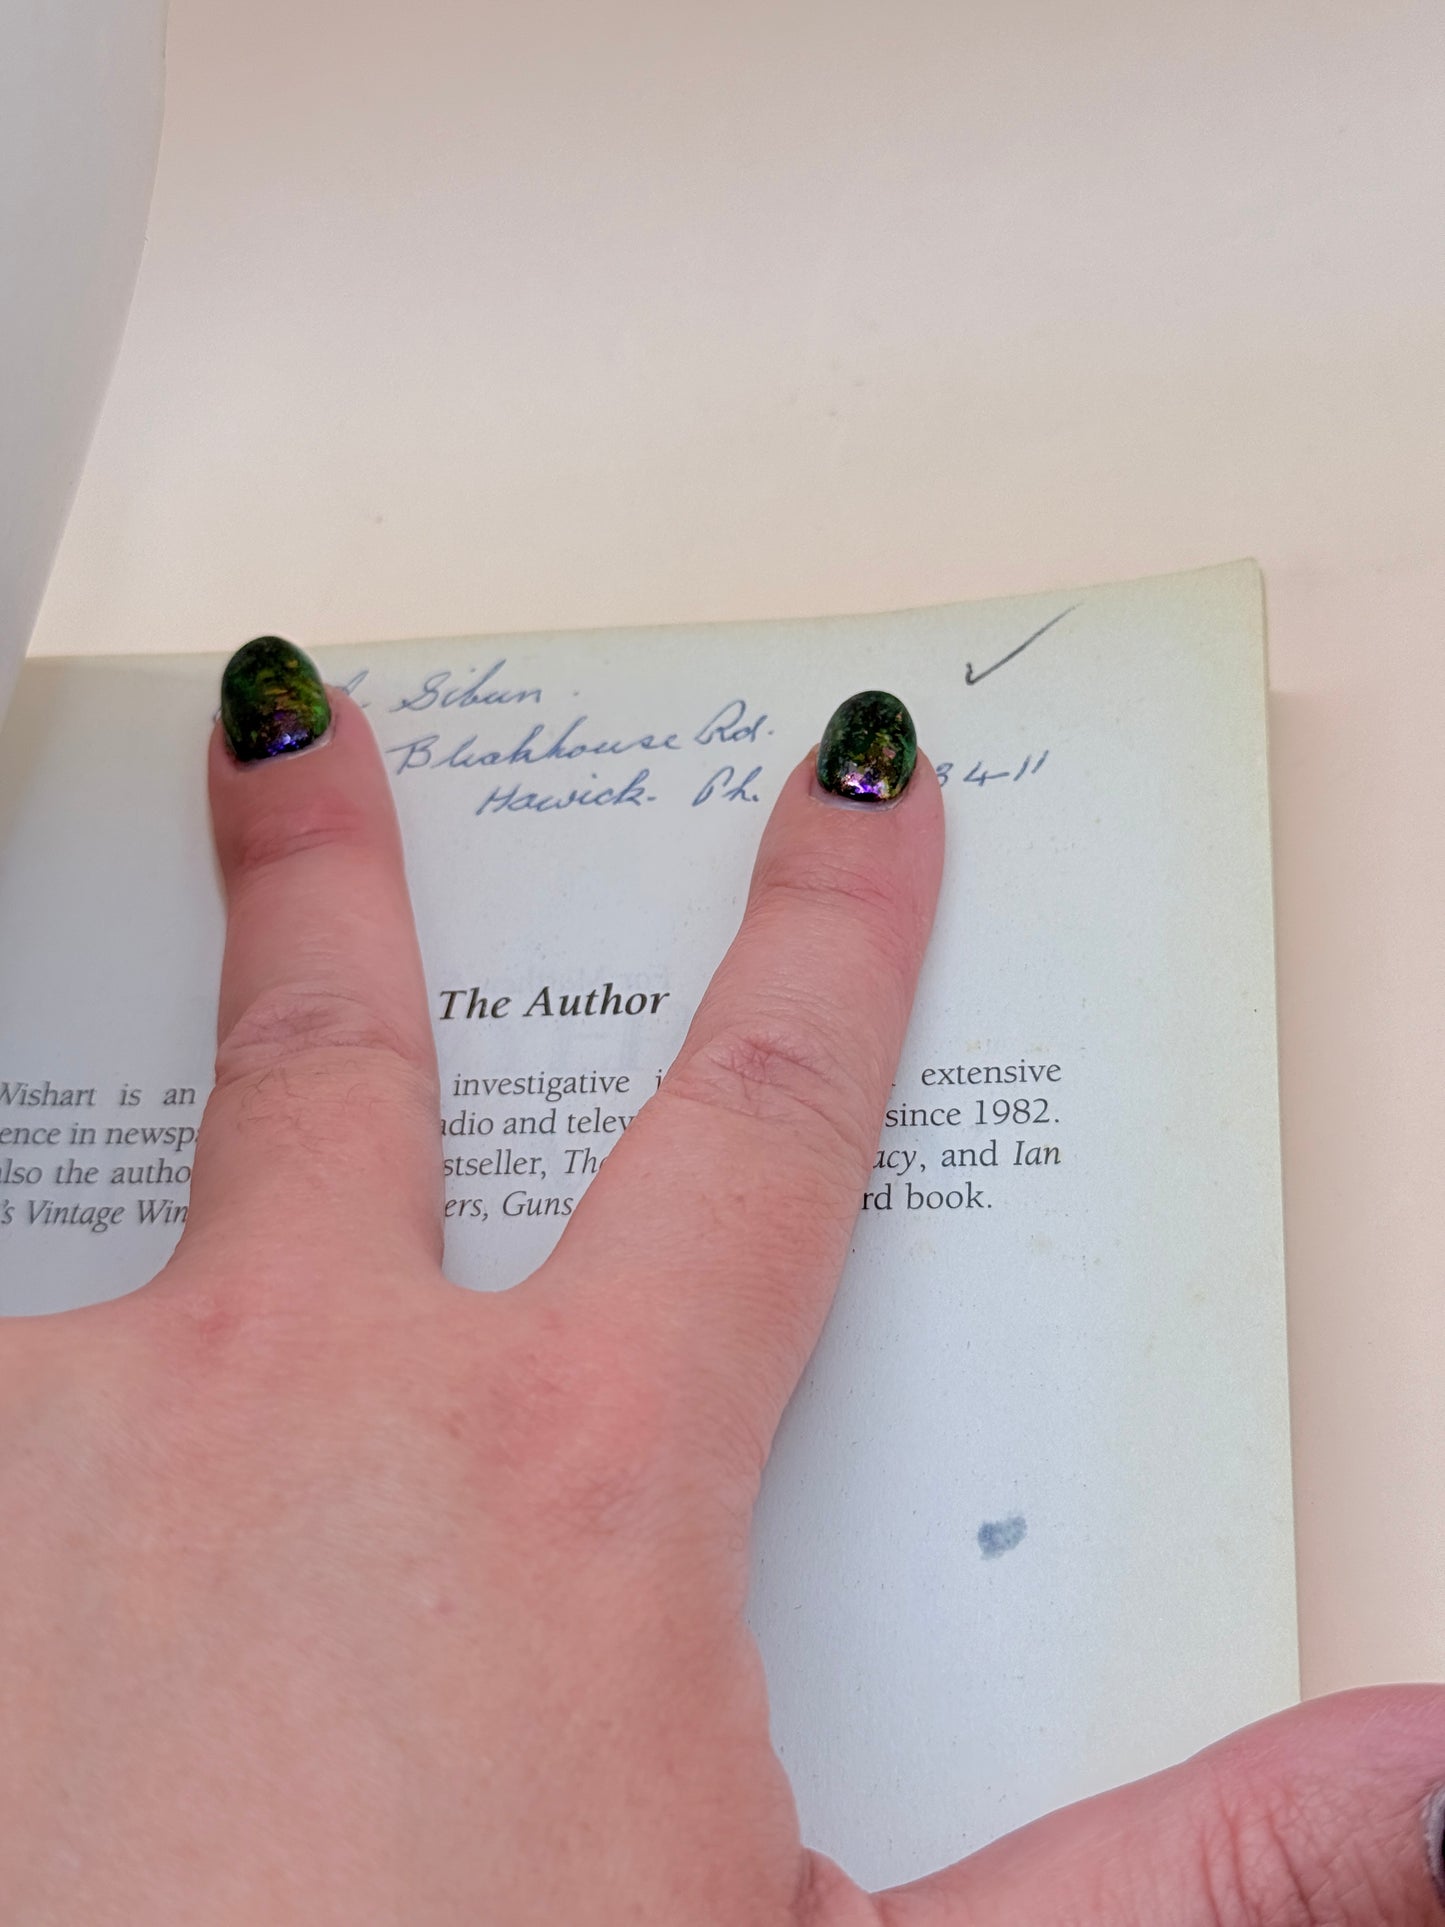 Sibun.
Bleakhouse Rd.
Howick. Ph. 34-11
The Author
Wishart is an investigative extensive
ence in newsp adio and telev since 1982.
also the autho stseller, The acy, and Ian
's Vintage Win ers, Guns rd book.